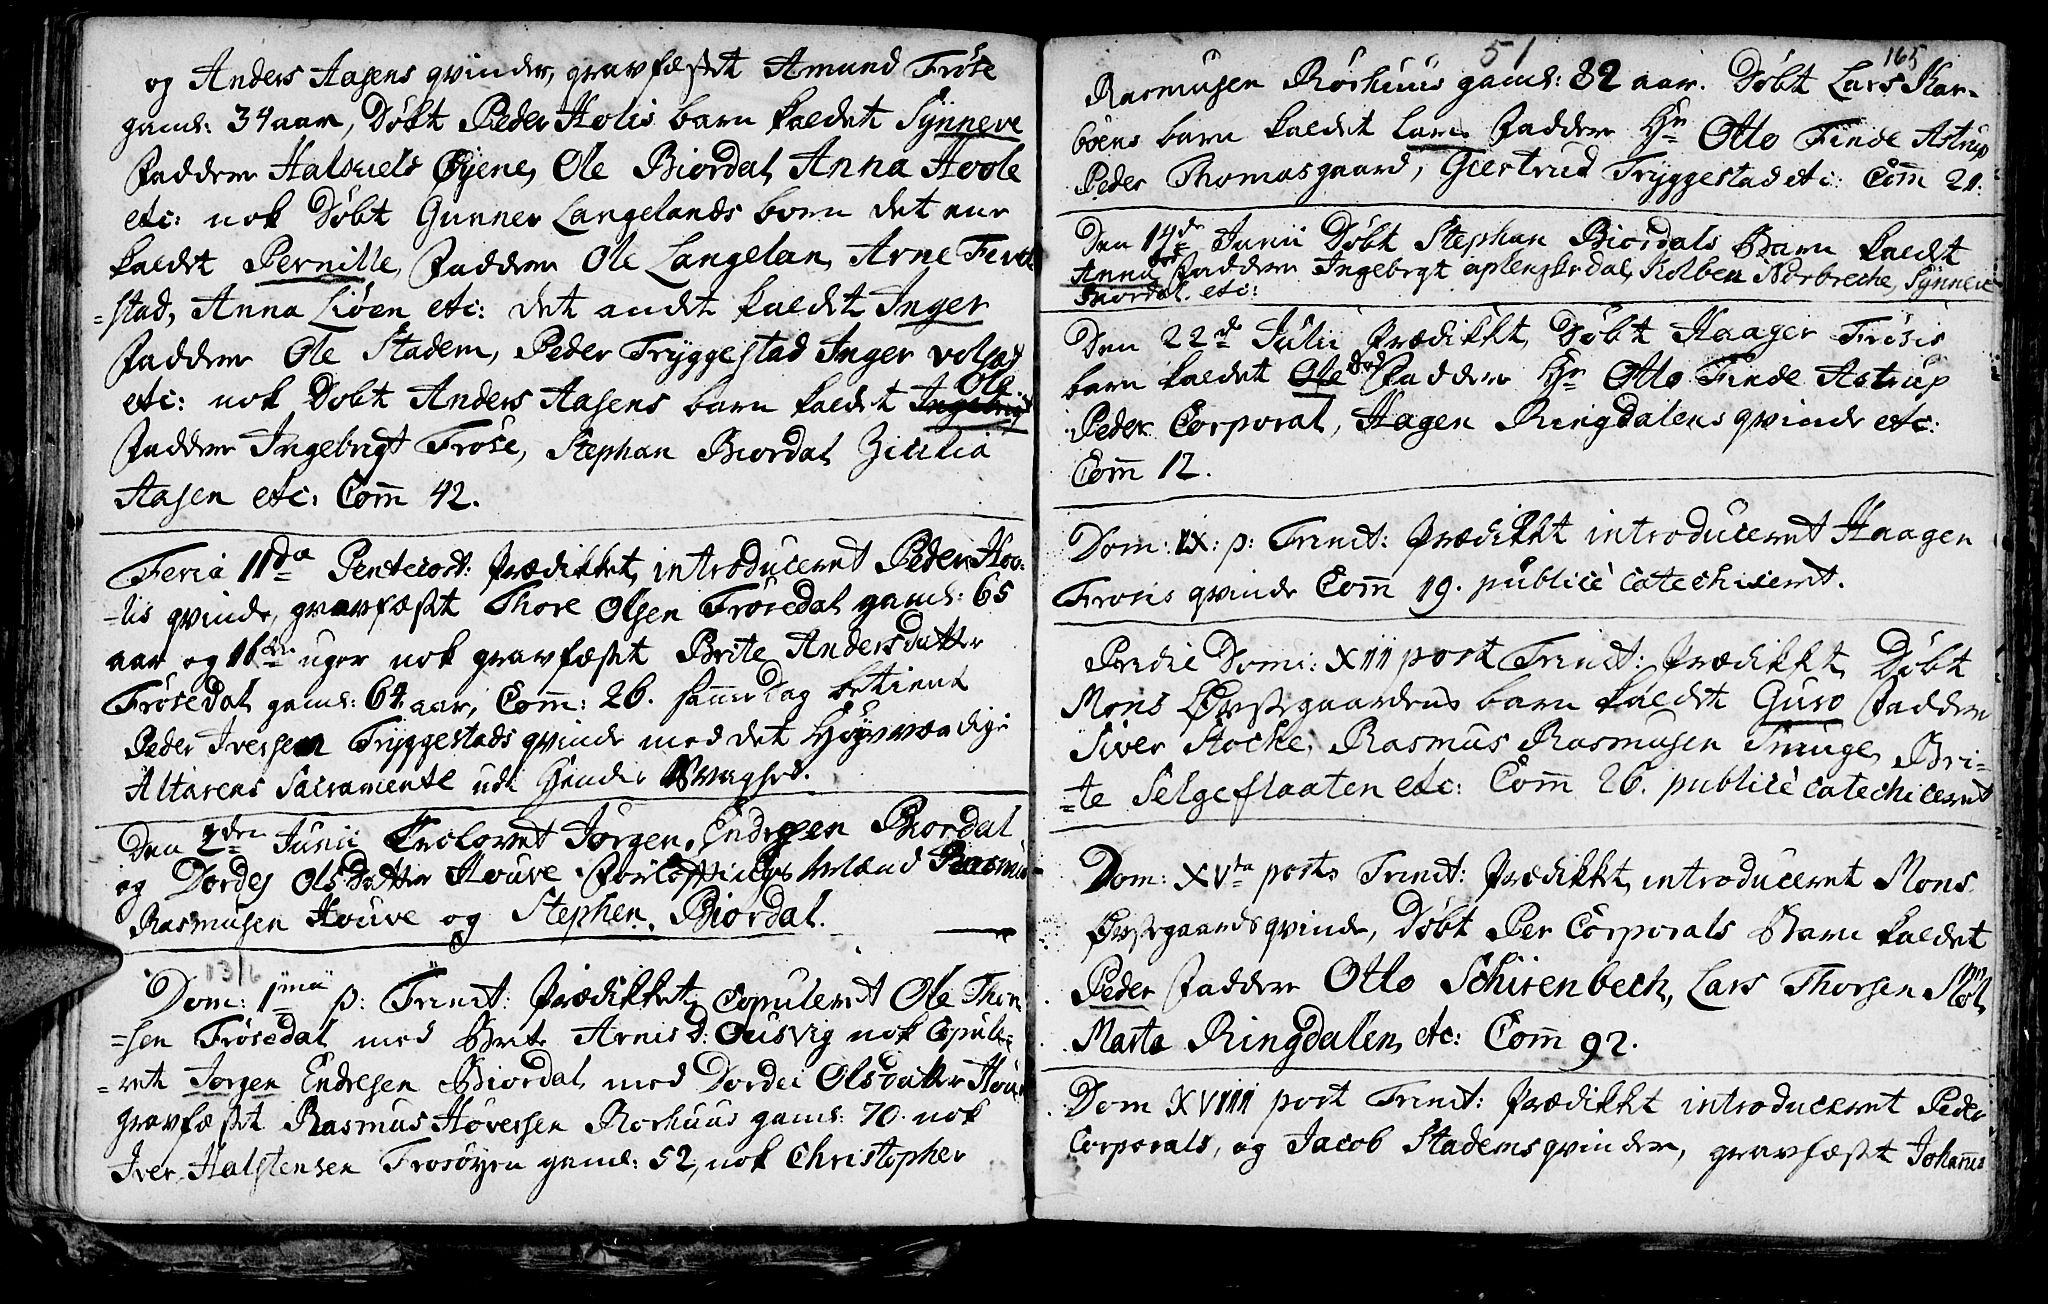 og Anders Aasens qvinder, gravfæstet Amund Frøse
gaml: 34 aar, Døbt Peder Holis barn kaldet Synneve
Faddere Halsuels Øyene, Ole Biordal, Anna Hoole
etc: nok Døbt Gunner Langelands born det ene
kaldet Pernille, Faddere Ole Langelan, Arne
=stad, Anna Liøen etc: det andet kaldet Inger
Faddere Ole Stadem, Peder Tryggestad Inger
etc: nok Døbt Anders Aasens barn kaldet Ole
Faddere Ingebrigt Frøse, Stephan Biordal Zicilia
Aasen etc: Com̅ 42.
Feria IIda Pentecost: Prædikket, introduceret Peder Hoo:
=lis qvinde, gravfæstet Thore Olsen Frøsedal gaml: 65
aar og 16 uger nok gravfæstet Brite Andersdatter
Frøsedal gaml: 64 aar, Com̅: 26. sam̅edag betient
Peder Iversen Tryggestads qvinde med det Høyværdige
Altarens Sacramente udi Hendes Svaghed.
Den 2den Junii Trolovet Jørgen Endresen Biordal
og Dordej Olsdatter Houve Forløftnings Mænd Rasmus
Rasmusen Houve og Stephen Biordal.
13/6
Dom: 1ma p: Trinit: Prædikket, Copuleret Ole Thor
=sen Frøsedal med Brite Arnisd: Ousvig nok Copule=
=ret Jorgen Endresen Biordal med Dordei Olsdatter Houve
gravfæstet Rasmus Hoversen Rorhuus gaml: 70. nok
Iver Halstensen Frosøyen gaml: 52, nok Christopher
51 165
Rasmusen Rorhuus gaml: 82 aar. Døbt Lars Kar-
bøens barn kaldet Lars Faddere Hr Otto Finde Astrup
Peder Thomasgaard, Giertrud Tryggestad etc: Com̅ 21:
Den 14de Junii Døbt Stephan Biordals Barn kaldet
Anna Faddere Ingebrgt aplenskedal, Kolben Nørbreche, Synneve
Biordal. etc:
Den 22de Julii Prædikket, Døbt Haager Frøsis
barn kaldet Ole Faddere Hr Otto Finde Astrup
Peder Corporal, Hagen Ringdalens qvinde etc:
Com̅ 12.
Dom: IX: p: Trinit: Prædikket introduceret Haagen
Frosis qvinde Com̅ 19. publicè catechiseret.
Predie Domi: XII post Trinit: Prædikket, Døbt
Mons Ørstegaardens barn kaldet Guro Faddere
Siver Hocke, Rasmus Rasmusen Tinuge, Bri=
=te Selgeflaaten etc: Com̅ 26. publicè catechiceret
Dom: XVta post Trinit: Prædikket, introduceret Mons
Ørstegaards qvinde, Døbt Per Corporals Barn kaldet
Peder Faddere Otto Schirenbech, Lars Thorsen
Marta Ringdalen, etc: Com̅ 92.
Dom XVIII post Trinit: Prædikket introduceret Peder
Corporals, og Jacob Stadems qvinder, gravfæstet Johannes